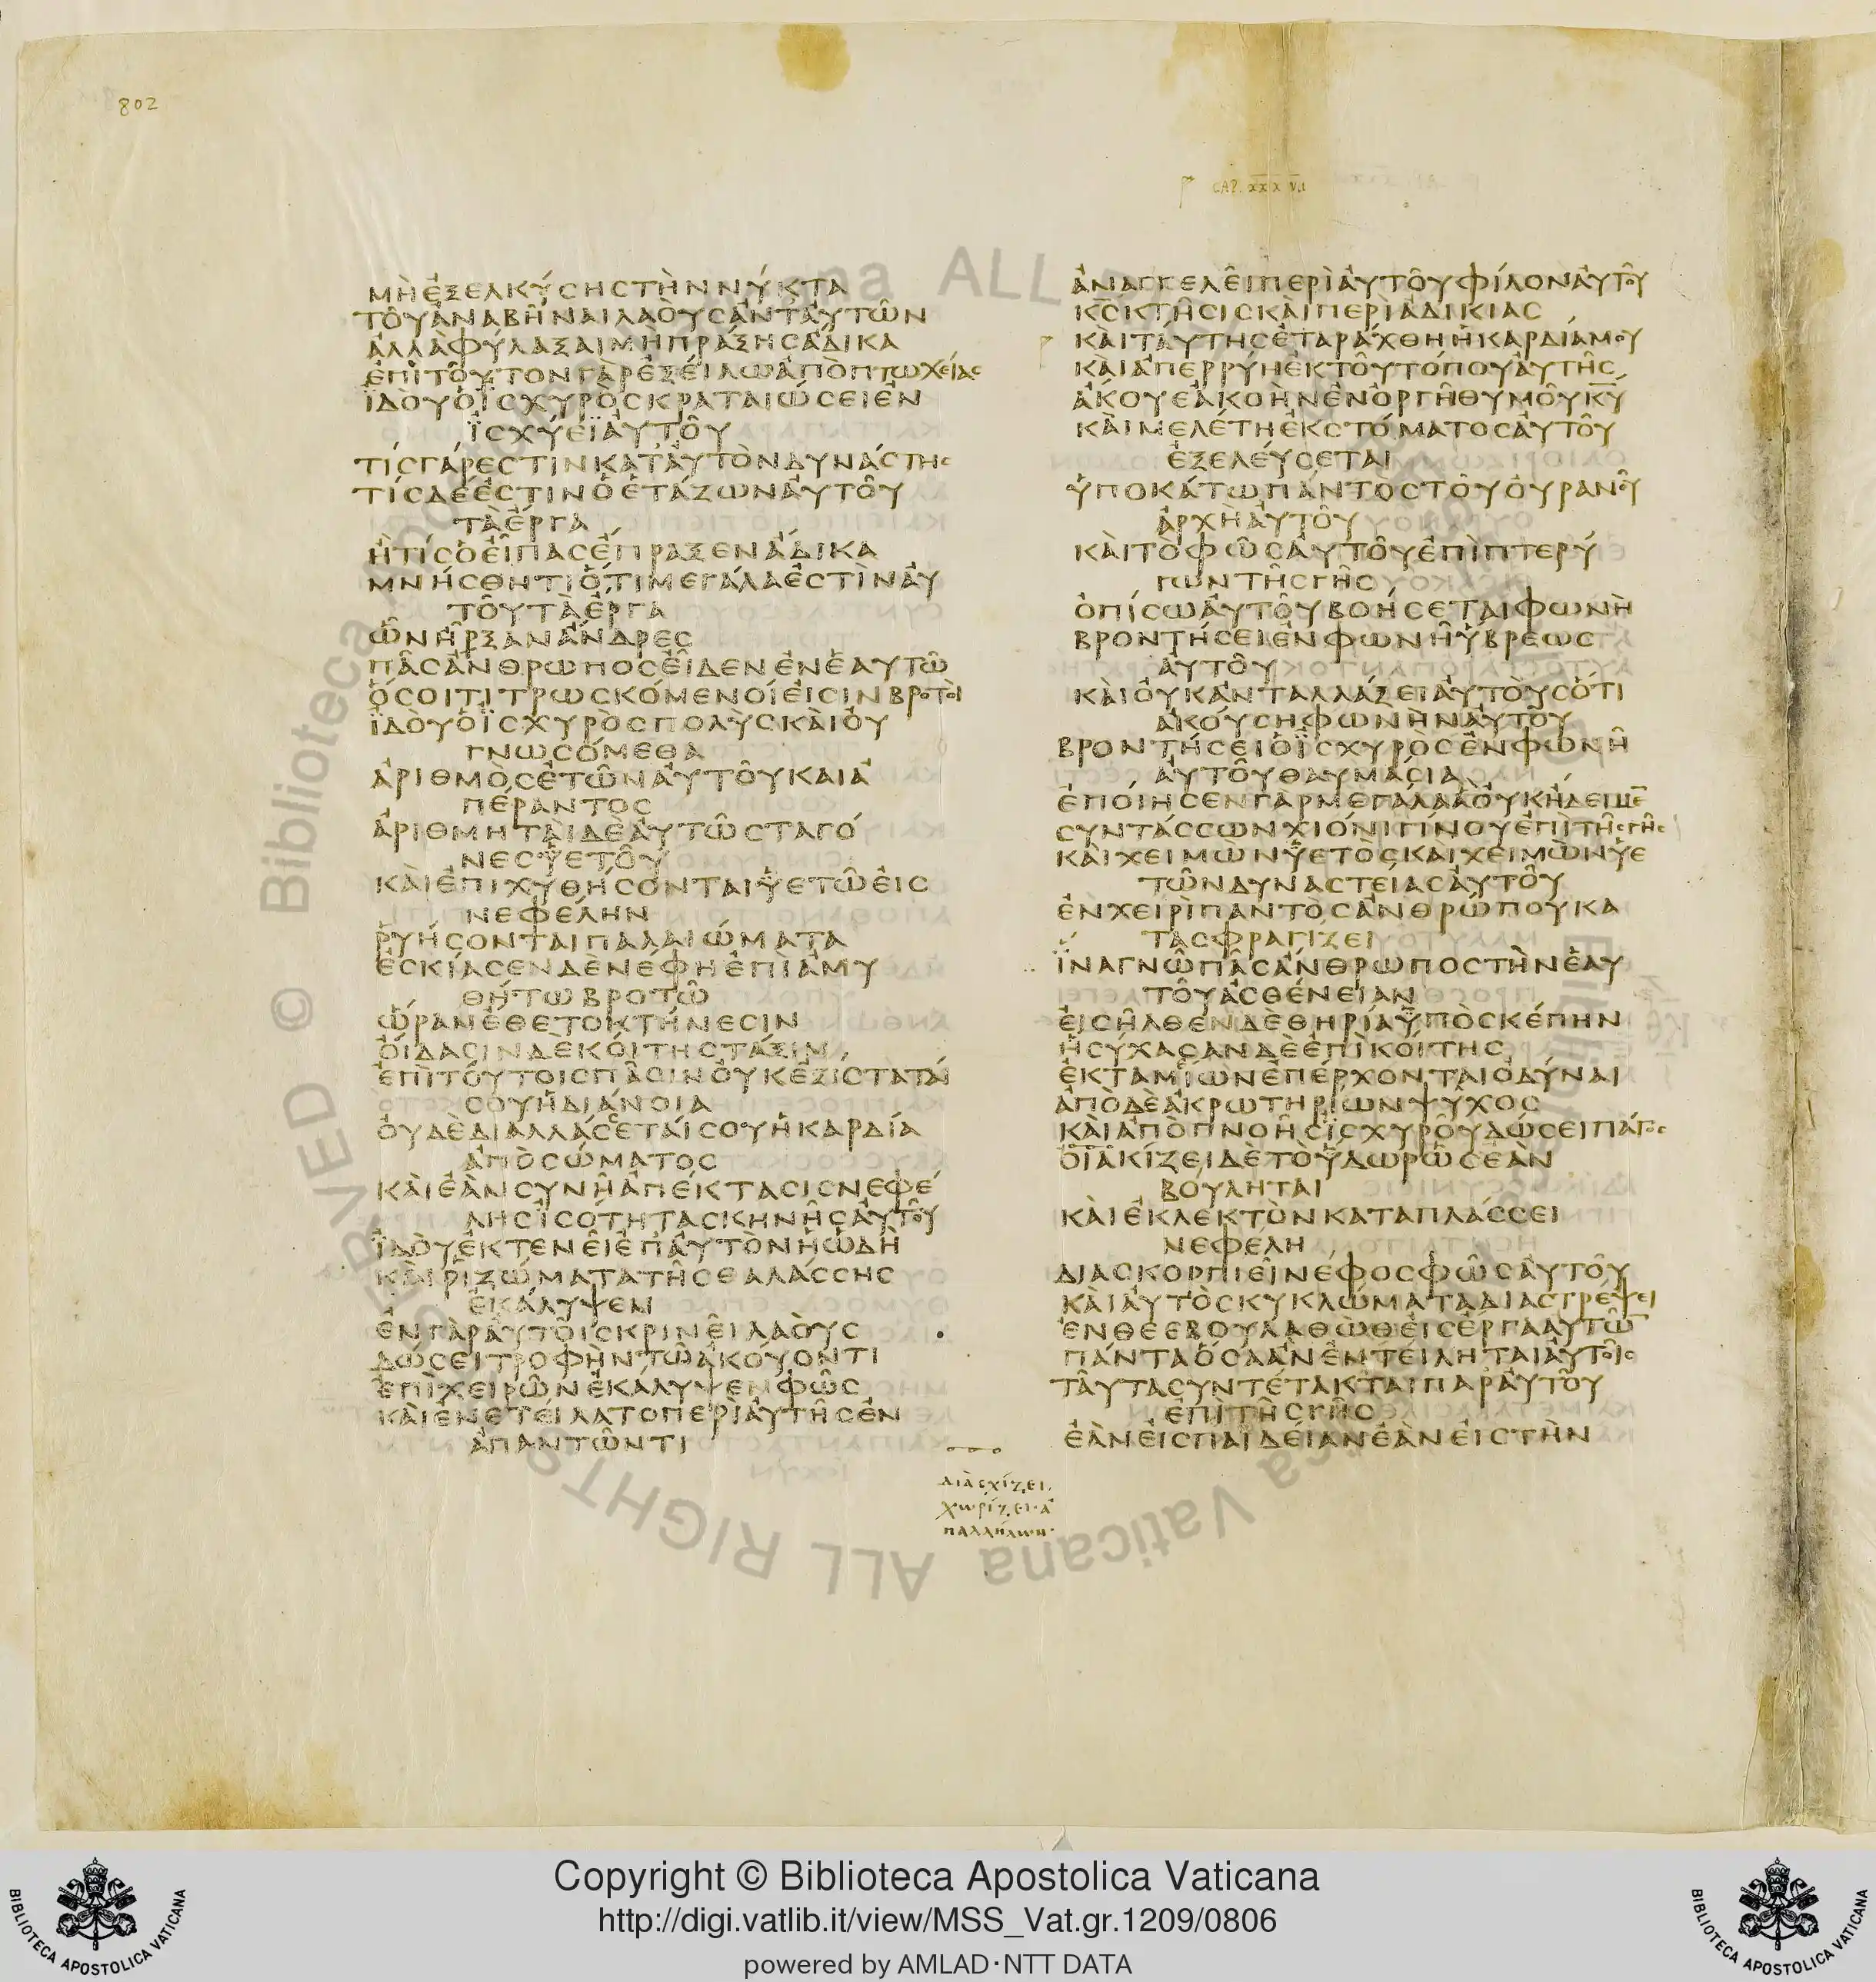 802
CAP. XXXVII
ΜΗ ΕΞΕΛΚΥΣΗΣ ΤΗΝ ΝΥΚΤΑ
ΤΟΥ ΑΝΑΒΗΝΑΙ ΛΑΟΥΣ ΑΝΤ ΑΥΤΩΝ
ΑΛΛΑ ΦΥΛΑΞΑΙ ΜΗ ΠΡΑΞΗΣ ΑΔΙΚΑ
ΕΠΙ ΤΟΥΤΟΝ ΓΑΡ ΕΞΕΙΛΩ ΑΠΟ ΠΤΩΧΕΙΑΣ
ΙΔΟΥ Ο ΙΣΧΥΡΟΣ ΚΡΑΤΑΙΩΣΕΙ ΕΝ
ΙΣΧΥΕΙ ΑΥΤΟΥ
ΤΙΣ ΓΑΡ ΕΣΤΙΝ ΚΑΤ ΑΥΤΟΝ ΔΥΝΑΣΤΗΣ
ΤΙΣ ΔΕ ΕΣΤΙΝ Ο ΕΤΑΖΩΝ ΑΥΤΟΥ
ΤΑ ΕΡΓΑ
Η ΤΙΣ Ο ΕΙΠΑΣ ΕΠΡΑΞΕΝ ΑΔΙΚΑ
ΜΝΗΣΘΗΤΙ ΟΤΙ ΜΕΓΑΛΑ ΕΣΤΙΝ ΑΥ
ΤΟΥ ΤΑ ΕΡΓΑ
ΩΝ ΗΡΞΑΝ ΑΝΔΡΕΣ
ΠΑΣ ΑΝΘΡΩΠΟΣ ΕΙΔΕΝ ΕΝ ΕΑΥΤΩ
ΟΣΟΙ ΤΙΤΡΩΣΚΟΜΕΝΟΙ ΕΙΣΙΝ ΒΡΟΤΟΙ
ΙΔΟΥ Ο ΙΣΧΥΡΟΣ ΠΟΛΥΣ ΚΑΙ ΟΥ
ΓΝΩΣΟΜΕΘΑ
ΑΡΙΘΜΟΣ ΕΤΩΝ ΑΥΤΟΥ ΚΑΙ Α
ΠΕΡΑΝΤΟΣ
ΑΡΙΘΜΗΤΑΙ ΔΕ ΑΥΤΩ ΣΤΑΓΟ
ΝΕΣ ΥΕΤΟΥ
ΚΑΙ ΕΠΙΧΥΘΗΣΟΝΤΑΙ ΥΕΤΩ ΕΙΣ
ΝΕΦΕΛΗΝ
ΡΥΗΣΟΝΤΑΙ ΠΑΛΑΙΩΜΑΤΑ
ΕΣΚΙΑΣΕΝ ΔΕ ΝΕΦΗ ΕΠΙ ΑΜΥ
ΘΗΤΩ ΒΡΟΤΩ
ΩΡΑΝ ΕΘΕΤΟ ΚΤΗΝΕΣΙΝ
ΟΙΔΑΣΙΝ ΔΕ ΚΟΙΤΗΣ ΤΑΞΙΝ
ΕΠΙ ΤΟΥΤΟΙΣ ΠΑΣΙΝ ΟΥΚ ΕΞΙΣΤΑΤΑΙ
ΣΟΥ Η ΔΙΑΝΟΙΑ
ΟΥΔΕ ΔΙΑΛΛΑΣΕΤΑΙ ΣΟΥ Η ΚΑΡΔΙΑ
ΑΠΟ ΣΩΜΑΤΟΣ
ΚΑΙ ΕΑΝ ΣΥΝΗ ΑΠΕΚΤΑΣΙΣ ΝΕΦΕ
ΛΗΣ ΙΣΟΤΗΤΑ ΣΚΗΝΗΣ ΑΥΤΟΥ
ΙΔΟΥ ΕΚΤΕΝΕΙ ΕΠ ΑΥΤΟΝ Η ΩΔΗ
ΚΑΙ ΡΙΖΩΜΑΤΑ ΤΗΣ ΘΑΛΑΣΣΗΣ
ΕΚΑΛΥΨΕΝ
ΕΝ ΓΑΡ ΑΥΤΟΙΣ ΚΡΙΝΕΙ ΛΑΟΥΣ
ΔΩΣΕΙ ΤΡΟΦΗΝ ΤΩ ΑΚΟΥΟΝΤΙ
ΕΠΙ ΧΕΙΡΩΝ ΕΚΑΛΥΨΕΝ ΦΩΣ
ΚΑΙ ΕΝΕΤΕΙΛΑΤΟ ΠΕΡΙ ΑΥΤΗΣ ΕΝ
ΑΠΑΝΤΩΝΤΙ
ΑΝΑΓΓΕΛΕΙ ΠΕΡΙ ΑΥΤΟΥ ΦΙΛΟΝ ΑΥΤΟΥ
ΚΣ ΚΤΗΣΙΣ ΚΑΙ ΠΕΡΙ ΑΔΙΚΙΑΣ
ΚΑΙ ΤΑΥΤΗΣ ΕΤΑΡΑΧΘΗ Η ΚΑΡΔΙΑ ΜΟΥ
ΚΑΙ ΑΠΕΡΡΥΗ ΕΚ ΤΟΥ ΤΟΠΟΥ ΑΥΤΗΣ
ΑΚΟΥΕ ΑΚΟΗΝ ΕΝ ΟΡΓΗ ΘΥΜΟΥ ΚΥ
ΚΑΙ ΜΕΛΕΤΗ ΕΚ ΣΤΟΜΑΤΟΣ ΑΥΤΟΥ
ΕΞΕΛΕΥΣΕΤΑΙ
ΥΠΟΚΑΤΩ ΠΑΝΤΟΣ ΤΟΥ ΟΥΡΑΝΟΥ
ΑΡΧΗ ΑΥΤΟΥ
ΚΑΙ ΤΟ ΦΩΣ ΑΥΤΟΥ ΕΠΙ ΠΤΕΡΥ
ΓΩΝ ΤΗΣ ΓΗΣ
ΟΠΙΣΩ ΑΥΤΟΥ ΒΟΗΣΕΤΑΙ ΦΩΝΗ
ΒΡΟΝΤΗΣΕΙ ΕΝ ΦΩΝΗ ΥΒΡΕΩΣ
ΑΥΤΟΥ
ΚΑΙ ΟΥΚ ΑΝΤΑΛΛΑΞΕΙ ΑΥΤΟΥΣ ΟΤΙ
ΑΚΟΥΣΗ ΦΩΝΗΝ ΑΥΤΟΥ
ΒΡΟΝΤΗΣΕΙ Ο ΙΣΧΥΡΟΣ ΕΝ ΦΩΝΗ
ΑΥΤΟΥ ΘΑΥΜΑΣΙΑ
ΕΠΟΙΗΣΕΝ ΓΑΡ ΜΕΓΑΛΑ Α ΟΥΚ ΗΔΕΙΜΕ
ΣΥΝΤΑΣΣΩΝ ΧΙΟΝΙ ΓΙΝΟΥ ΕΠΙ ΤΗΣ ΓΗΣ
ΚΑΙ ΧΕΙΜΩΝ ΥΕΤΟΣ ΚΑΙ ΧΕΙΜΩΝ ΥΕ
ΤΩΝ ΔΥΝΑΣΤΕΙΑΣ ΑΥΤΟΥ
ΕΝ ΧΕΙΡΙ ΠΑΝΤΟΣ ΑΝΘΡΩΠΟΥ ΚΑ
ΤΑΣΦΡΑΓΙΖΕΙ
ΙΝΑ ΓΝΩ ΠΑΣ ΑΝΘΡΩΠΟΣ ΤΗΝ ΕΑΥ
ΤΟΥ ΑΣΘΕΝΕΙΑΝ
ΕΙΣΗΛΘΕΝ ΔΕ ΘΗΡΙΑ ΥΠΟ ΣΚΕΠΗΝ
ΗΣΥΧΑΣΑΝ ΔΕ ΕΠΙ ΚΟΙΤΗΣ
ΕΚ ΤΑΜΙΩΝ ΕΠΕΡΧΟΝΤΑΙ ΟΔΥΝΑΙ
ΑΠΟ ΔΕ ΑΚΡΩΤΗΡΙΩΝ ΨΥΧΟΣ
ΚΑΙ ΑΠΟ ΠΝΟΗΣ ΙΣΧΥΡΟΥ ΔΩΣΕΙ ΠΑΓΟΣ
ΟΙΑΚΙΖΕΙ ΔΕ ΤΟ ΥΔΩΡ ΩΣ ΕΑΝ
ΒΟΥΛΗΤΑΙ
ΚΑΙ ΕΚΛΕΚΤΟΝ ΚΑΤΑΠΛΑΣΣΕΙ
ΝΕΦΕΛΗ
ΔΙΑΣΚΟΡΠΙΕΙ ΝΕΦΟΣ ΦΩΣ ΑΥΤΟΥ
ΚΑΙ ΑΥΤΟΣ ΚΥΚΛΩΜΑΤΑ ΔΙΑΣΤΡΕΨΕΙ
ΕΝ ΘΕΕΒΟΥΛΑΘΩΘ ΕΙΣ ΕΡΓΑ ΑΥΤΩ
ΠΑΝΤΑ ΟΣΑ ΑΝ ΕΝΤΕΙΛΗΤΑΙ ΑΥΤΟΙΣ
ΤΑΥΤΑ ΣΥΝΤΕΤΑΚΤΑΙ ΠΑΡ ΑΥΤΟΥ
ΕΠΙ ΤΗΣ ΓΗΣ
ΕΑΝ ΕΙΣ ΠΑΙΔΕΙΑΝ ΕΑΝ ΕΙΣ ΤΗΝ
ΔΙΑΣΧΙΖΕΙ
ΧΩΡΙΖΕΙ· Α
ΠΑΛΛΗΛΩΝ·
© Biblioteca Apostolica Vaticana ALL RIGHTS RESERVED
Copyright © Biblioteca Apostolica Vaticana
http://digi.vatlib.it/view/MSS_Vat.gr.1209/0806
powered by AMLAD·NTT DATA
BIBLIOTECA APOSTOLICA VATICANA
BIBLIOTECA APOSTOLICA VATICANA